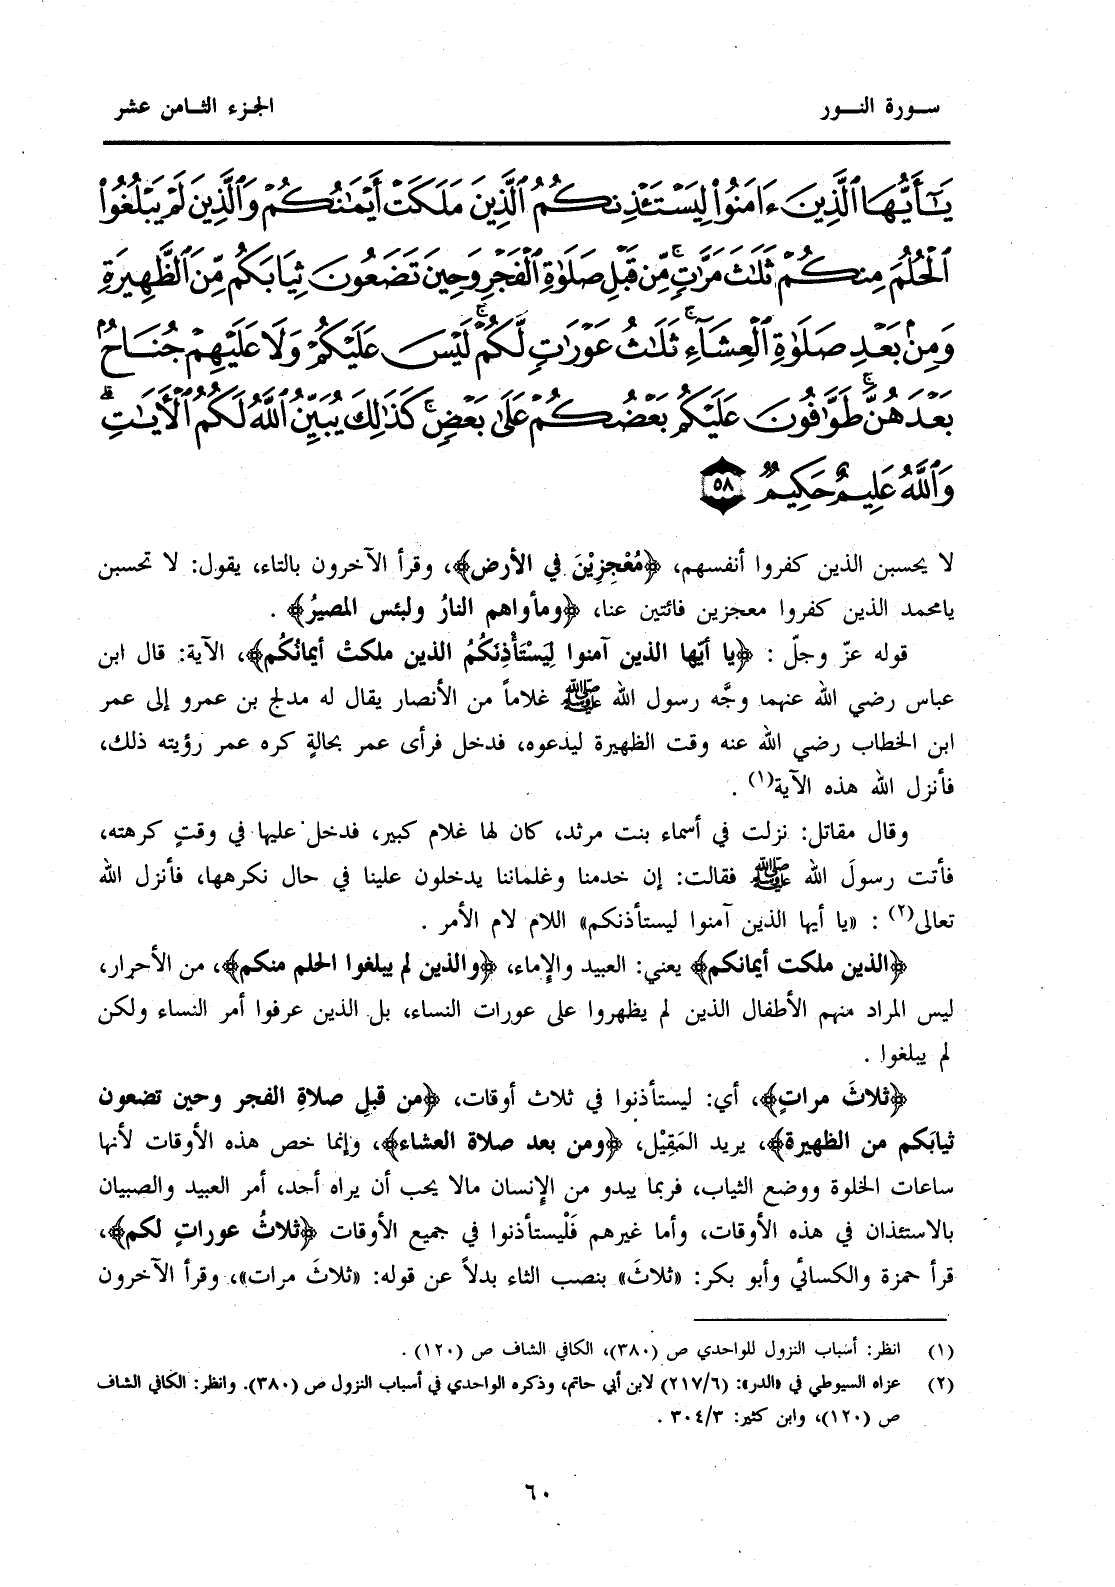 سورة النور
الجزء الثامن عشر
يَٰٓأَيُّهَا ٱلَّذِينَ ءَامَنُوا۟ لِيَسْتَـْٔذِنكُمُ ٱلَّذِينَ مَلَكَتْ أَيْمَٰنُكُمْ وَٱلَّذِينَ لَمْ يَبْلُغُوا۟
ٱلْحُلُمَ مِنكُمْ ثَلَٰثَ مَرَّٰتٍ ۚ مِّن قَبْلِ صَلَوٰةِ ٱلْفَجْرِ وَحِينَ تَضَعُونَ ثِيَابَكُم مِّنَ ٱلظَّهِيرَةِ
وَمِنۢ بَعْدِ صَلَوٰةِ ٱلْعِشَآءِ ۚ ثَلَٰثُ عَوْرَٰتٍ لَّكُمْ ۚ لَيْسَ عَلَيْكُمْ وَلَا عَلَيْهِمْ جُنَاحٌۢ
بَعْدَهُنَّ ۚ طَوَّٰفُونَ عَلَيْكُم بَعْضُكُمْ عَلَىٰ بَعْضٍ ۚ كَذَٰلِكَ يُبَيِّنُ ٱللَّهُ لَكُمُ ٱلْءَايَٰتِ ۗ
وَٱللَّهُ عَلِيمٌ حَكِيمٌ ٥٨
لا يحسبن الذين كفروا أنفسهم، ﴿مُعْجِزِيْنَ في الأرض﴾، وقرأ الآخرون بالتاء، يقول: لا تحسبن
يامحمد الذين كفروا معجزين فائتين عنا، ﴿ومأواهم النارُ ولبئس المصيرُ﴾ .
قوله عزّ وجلّ : ﴿يا أيّها الذين آمنوا لِيَسْتَأْذِنَكُمُ الذين ملكتْ أيمانُكُم﴾، الآية: قال ابن
عباس رضي الله عنهما وجَّه رسول الله ﷺ غلاماً من الأنصار يقال له مدلج بن عمرو إلى عمر
ابن الخطاب رضي الله عنه وقت الظهيرة ليدعوه، فدخل فرأى عمر بحالةٍ كره عمر رؤيته ذلك،
فأنزل الله هذه الآية(١) .
وقال مقاتل: نزلت في أسماء بنت مرثد، كان لها غلام كبير، فدخل عليها في وقتٍ كرهته،
فأتت رسولَ الله ﷺ فقالت: إن خدمنا وغلماننا يدخلون علينا في حال نكرهها، فأنزل الله
تعالى(٢) : «يا أيها الذين آمنوا ليستأذنكم» اللام لام الأمر .
﴿الذين ملكت أيمانكم﴾ يعني: العبيد والإماء، ﴿والذين لم يبلغوا الحلم منكم﴾، من الأحرار،
ليس المراد منهم الأطفال الذين لم يظهروا على عورات النساء، بل الذين عرفوا أمر النساء ولكن
لم يبلغوا .
﴿ثلاثَ مراتٍ﴾، أي: ليستأذنوا في ثلاث أوقات، ﴿من قبلِ صلاةِ الفجر وحين تضعون
ثيابَكم من الظهيرة﴾، يريد المَقِيْل، ﴿ومن بعد صلاة العشاء﴾، وإنما خص هذه الأوقات لأنها
ساعات الخلوة ووضع الثياب، فربما يبدو من الإنسان مالا يحب أن يراه أحد، أمر العبيد والصبيان
بالاستئذان في هذه الأوقات، وأما غيرهم فَلْيستأذنوا في جميع الأوقات ﴿ثلاثُ عوراتٍ لكم﴾،
قرأ حمزة والكسائي وأبو بكر: «ثلاثَ» بنصب الثاء بدلاً عن قوله: «ثلاثَ مرات»، وقرأ الآخرون
(١) انظر: أسباب النزول للواحدي ص (٣٨٠)، الكافي الشاف ص (١٢٠) .
(٢) عزاه السيوطي في «الدر»: (٢١٧/٦) لابن أبي حاتم، وذكره الواحدي في أسباب النزول ص (٣٨٠). وانظر: الكافي الشاف
ص (١٢٠)، وابن كثير: ٣٠٤/٣ .
٦٠